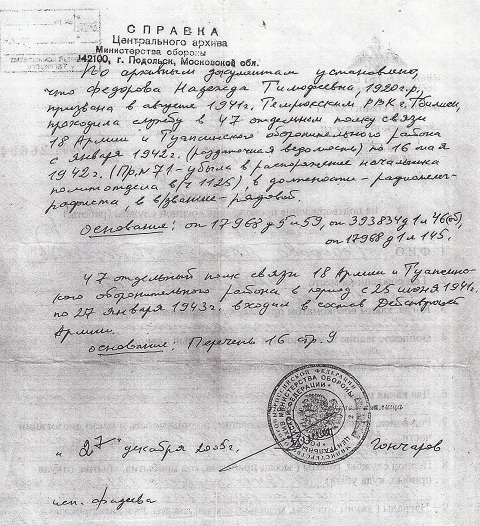 СПРАВКА
Центрального архива
Министерства обороны
142100, г. Подольск, Московской обл.
По архивным документам установлено,
что Федорова Надежда Тимофеевна, 1920 г.р.,
призвана в августе 1941г. Темрюкским РВК г. Тбилиси,
проходила службу в 47 отдельном полку связи
18 Армии и Туапсинского оборонительного района
с января 1942г. (раздаточная ведомость) по 16 мая
1942г. (Пр.N 71 - убыла в распоряжение начальника
политотдела в/ч 1125), в должности - радиотелег-
рафиста, в в/звании - рядовой.
Основание: оп 17968 д 5 л 59, оп 393834 д 1 л 46(об),
оп 17968 д 1 л 145.
47 отдельный полк связи 18 Армии и Туапсин-
ского оборонительного района в период с 25 июня 1941г.
по 27 января 1943г. входил в состав Действующей
Армии.
Основание: Перечень 16 стр. 9
МИНИСТЕРСТВА ОБОРОНЫ
"27" декабря 2005г.
Гончаров
исп. Фадеева